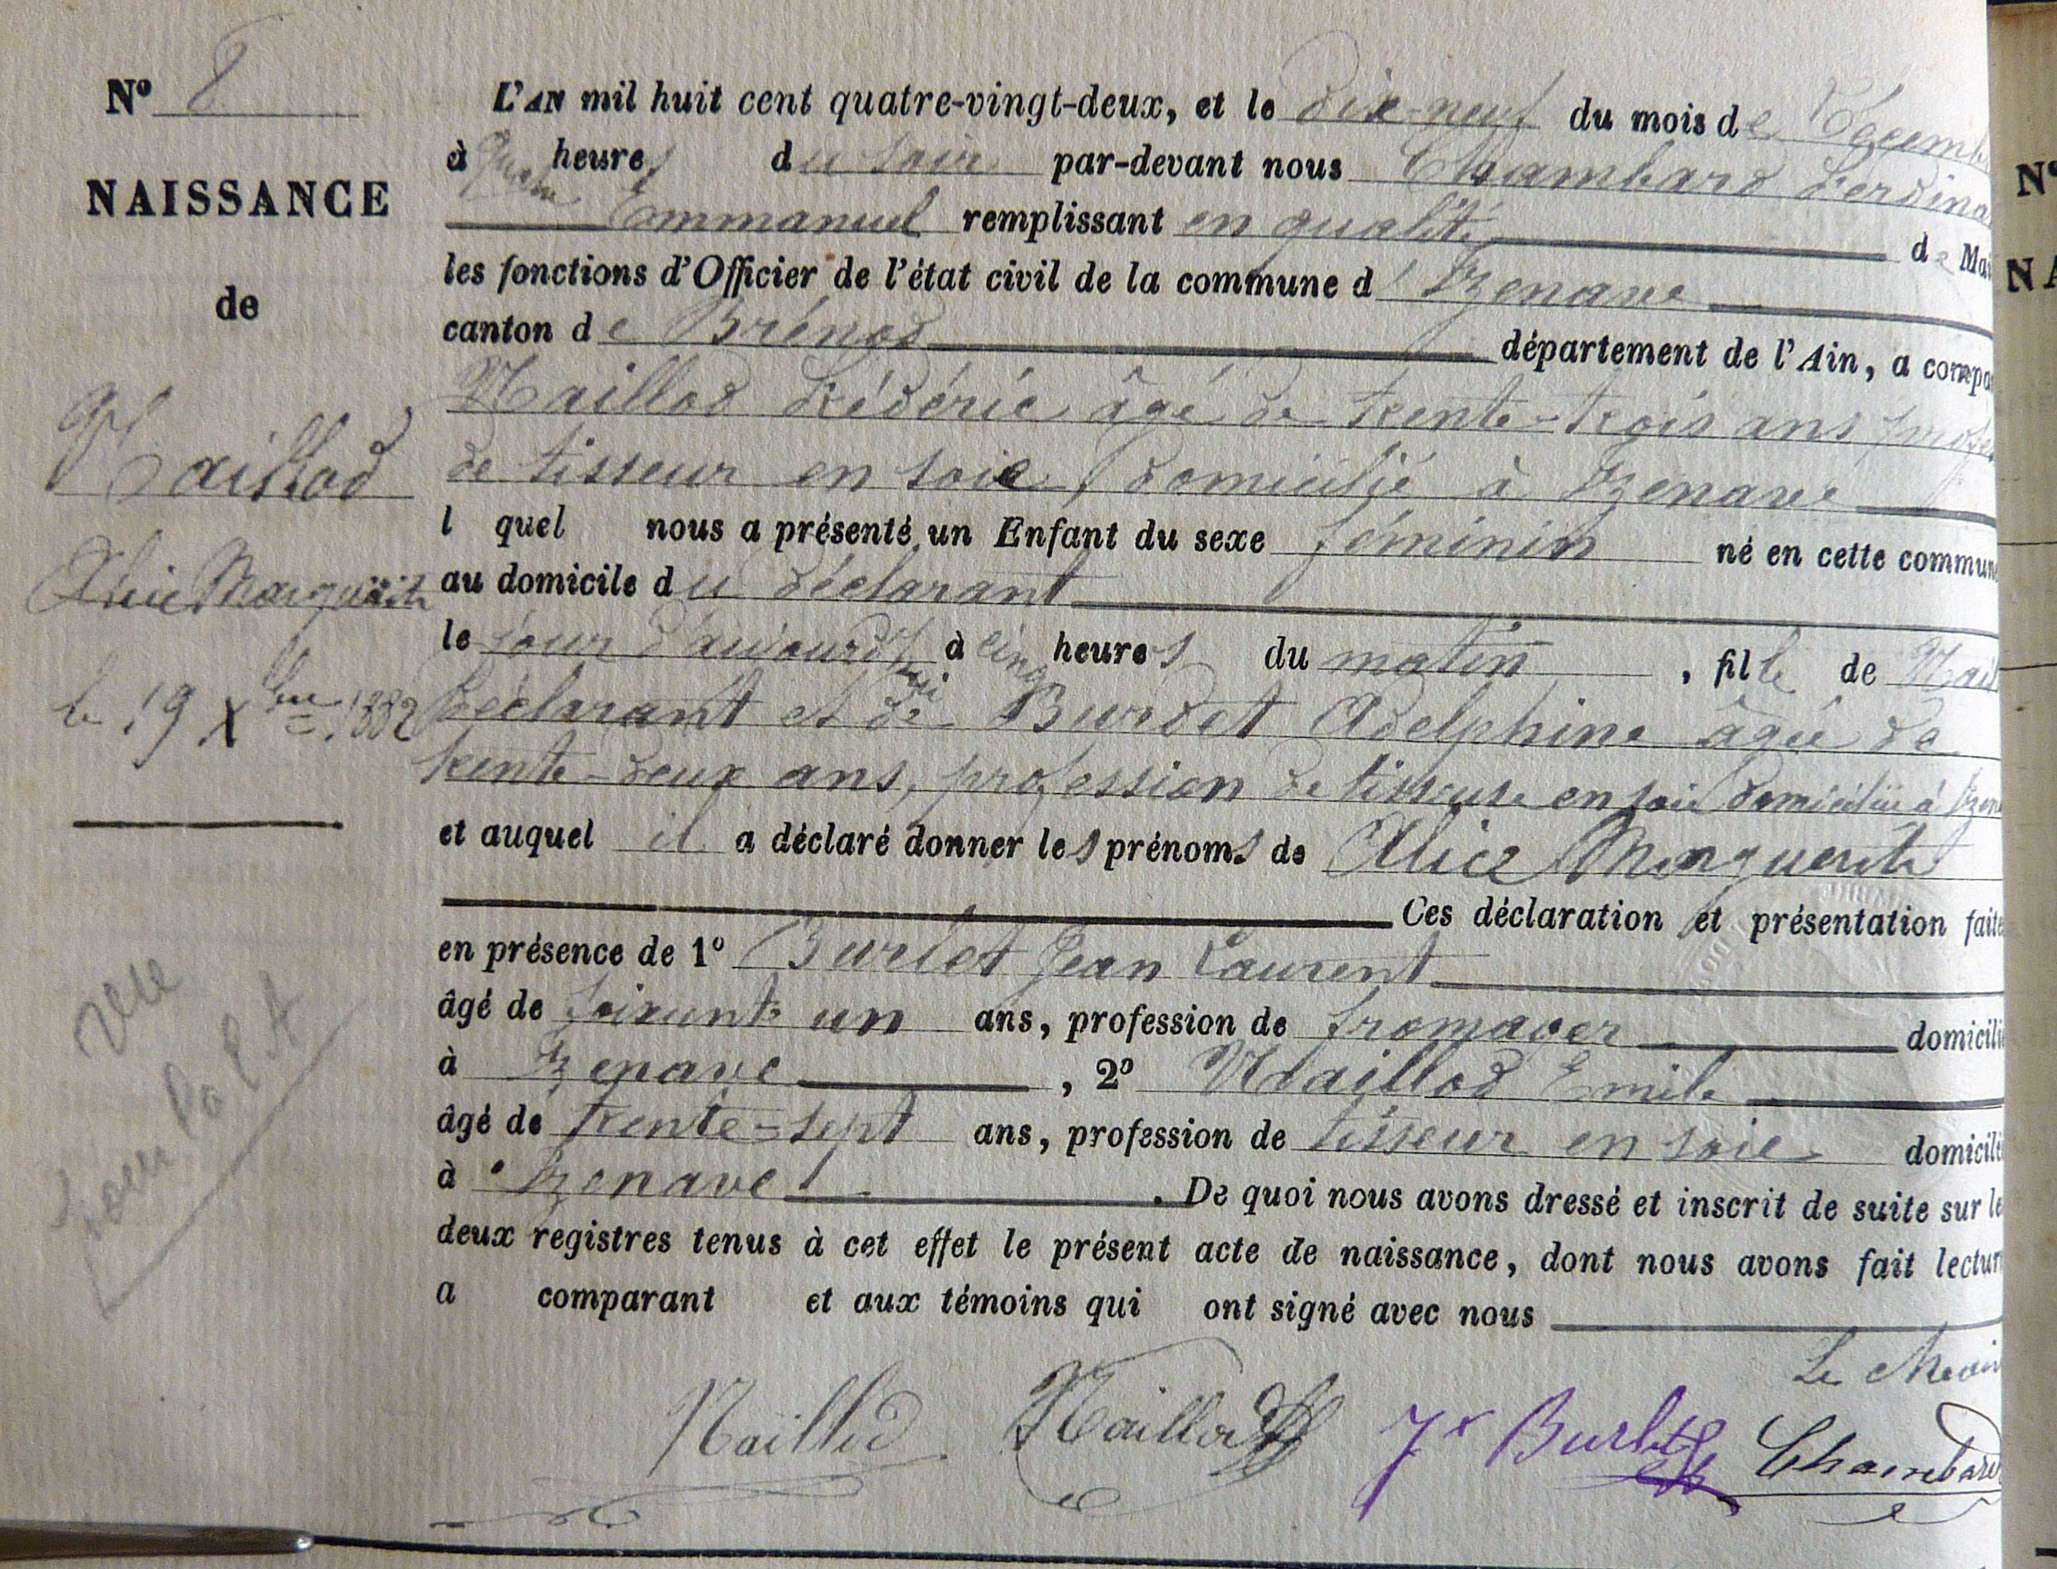 Nº 8
NAISSANCE
de
Maillod
Alice Marguerite
le 19 Xbre 1882
vue
pour
L'AN mil huit cent quatre-vingt-deux, et le dix-neuf du mois de Décemb
à quatre heures du soir par-devant nous Chambard Ferdina
Emmanuel remplissant en qualité de Mai
les fonctions d'Officier de l'état civil de la commune d'Izenave
canton de Brénod département de l'Ain, a compa
Maillod Frédéric âgé de trente-trois ans profes
de tisseur en soie, domicilié à Izenave
l quel nous a présenté un Enfant du sexe féminin né en cette commune
au domicile du déclarant
le jour d'aujourd'hui à cinq heures du matin, fille de Mail
déclarant et de Burdet Adelphine âgée de
trente-deux ans, profession de tisseuse en soie domiciliée à Izena
et auquel il a déclaré donner les prénoms de Alice Marguerite
Ces déclaration et présentation faite
en présence de 1º Burlet Jean Laurent
âgé de soixante un ans, profession de fromager domicilié
à Izenave, 2º Maillod Emile
âgé de trente-sept ans, profession de tisseur en soie domicilié
à Izenave. De quoi nous avons dressé et inscrit de suite sur le
deux registres tenus à cet effet le présent acte de naissance, dont nous avons fait lectur
a comparant et aux témoins qui ont signé avec nous
Le Mair
Maillod Maillod Burlet Chambard
Nº
NA